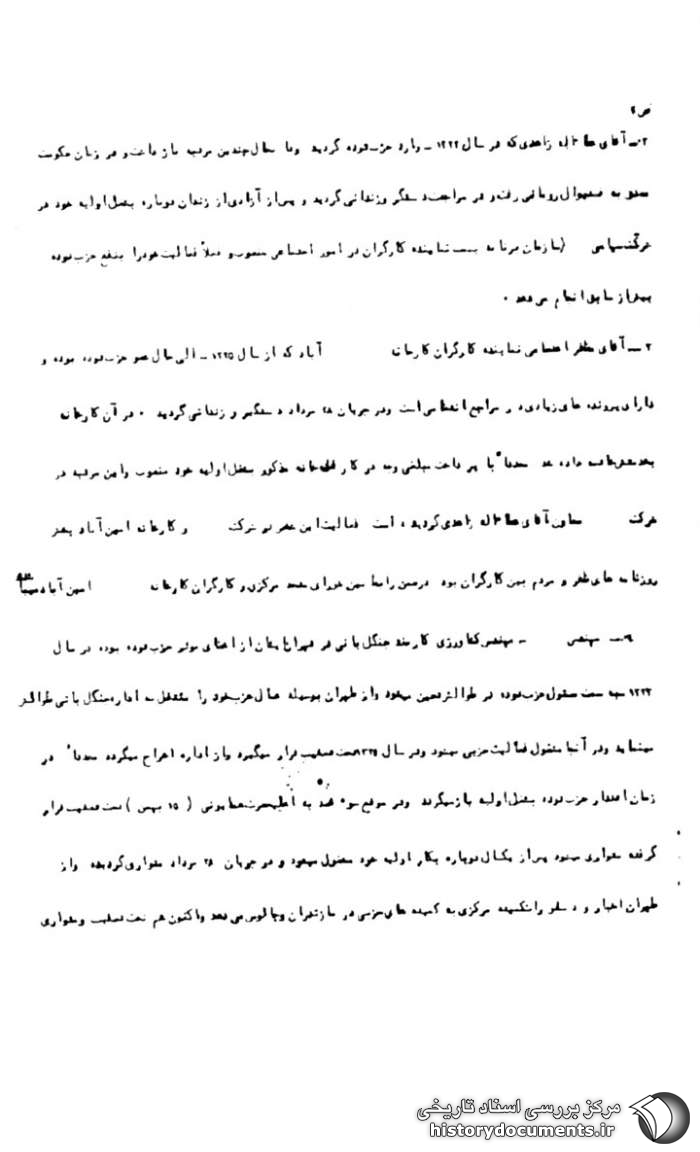 ص ۲
۲ـ آقای زاهدی که در سال ۱۳۲۲ ـ وارد حزب توده گردید و تا حال چندین مرتبه بازداخت و در زمان حکومت
به رفت و در مراجعت دستگیر و زندانی گردید و پس از آزادی از زندان دوباره بشغل اولیه خود در
شرکت سهامی (سازمان برنامه بسمت نماینده کارگران در امور اجتماعی منصوب و عملاً فعالیت خود را بنفع حزب توده
بیش از سابق انجام می دهد ۰
۳ ـ آقای مظفر اعتصامی نماینده کارگران کارخانه آباد که از سال ۱۳۲۵ ـ الی حال عضو حزب توده بوده و
دارای پرونده های زیادی در مراجع انتظامی است و در جریان ۲۸ مرداد دستگیر و زندانی گردید ۰ در آن کارخانه
داده شد بعداً با پرداخت مبلغی وجه در کارخانه مذکور بشغل اولیه خود منصوب و این مرتبه در
شرکت معاون آقای زاهدی گردیده است فعالیت این عضو در شرکت و کارخانه امین آباد پخش
روزنامه های ظفر و مردم بین کارگران بود در ضمن رابط بین شورای متحده مرکزی و کارگران کارخانه امین آباد میباشد
ـ مهندس ـ مهندس کشاورزی کارمند جنگل بانی در از اعضای موثر حزب توده بوده در سال
۱۳۲۳ به سمت مسئول حزب توده در طوالش تعیین میشود و از طهران بوسیله عمال حزب خود را منتقل به اداره جنگل بانی طوالش
مینماید و در آنجا مشغول فعالیت حزبی میشود و در سال ۱۳۲۵ تحت تعقیب قرار میگیرد و از اداره اخراج میگردد بعداً در
زمان اقتدار حزب توده بشغل اولیه باز میگردد و در موقع سوء قصد به اعلیحضرت همایونی ( ۱۵ بهمن ) تحت تعقیب قرار
گرفته متواری میشود پس از یکسال دوباره بکار اولیه خود مشغول میشود و در جریان ۲۸ مرداد متواری گردیده و از
طهران اخبار و دستورات کمیته مرکزی به کمیته های حزبی در مازندران و چالوس می دهد و اکنون هم تحت تعقیب و متواری
مرکز بررسی اسناد تاریخی
historydocuments.ir